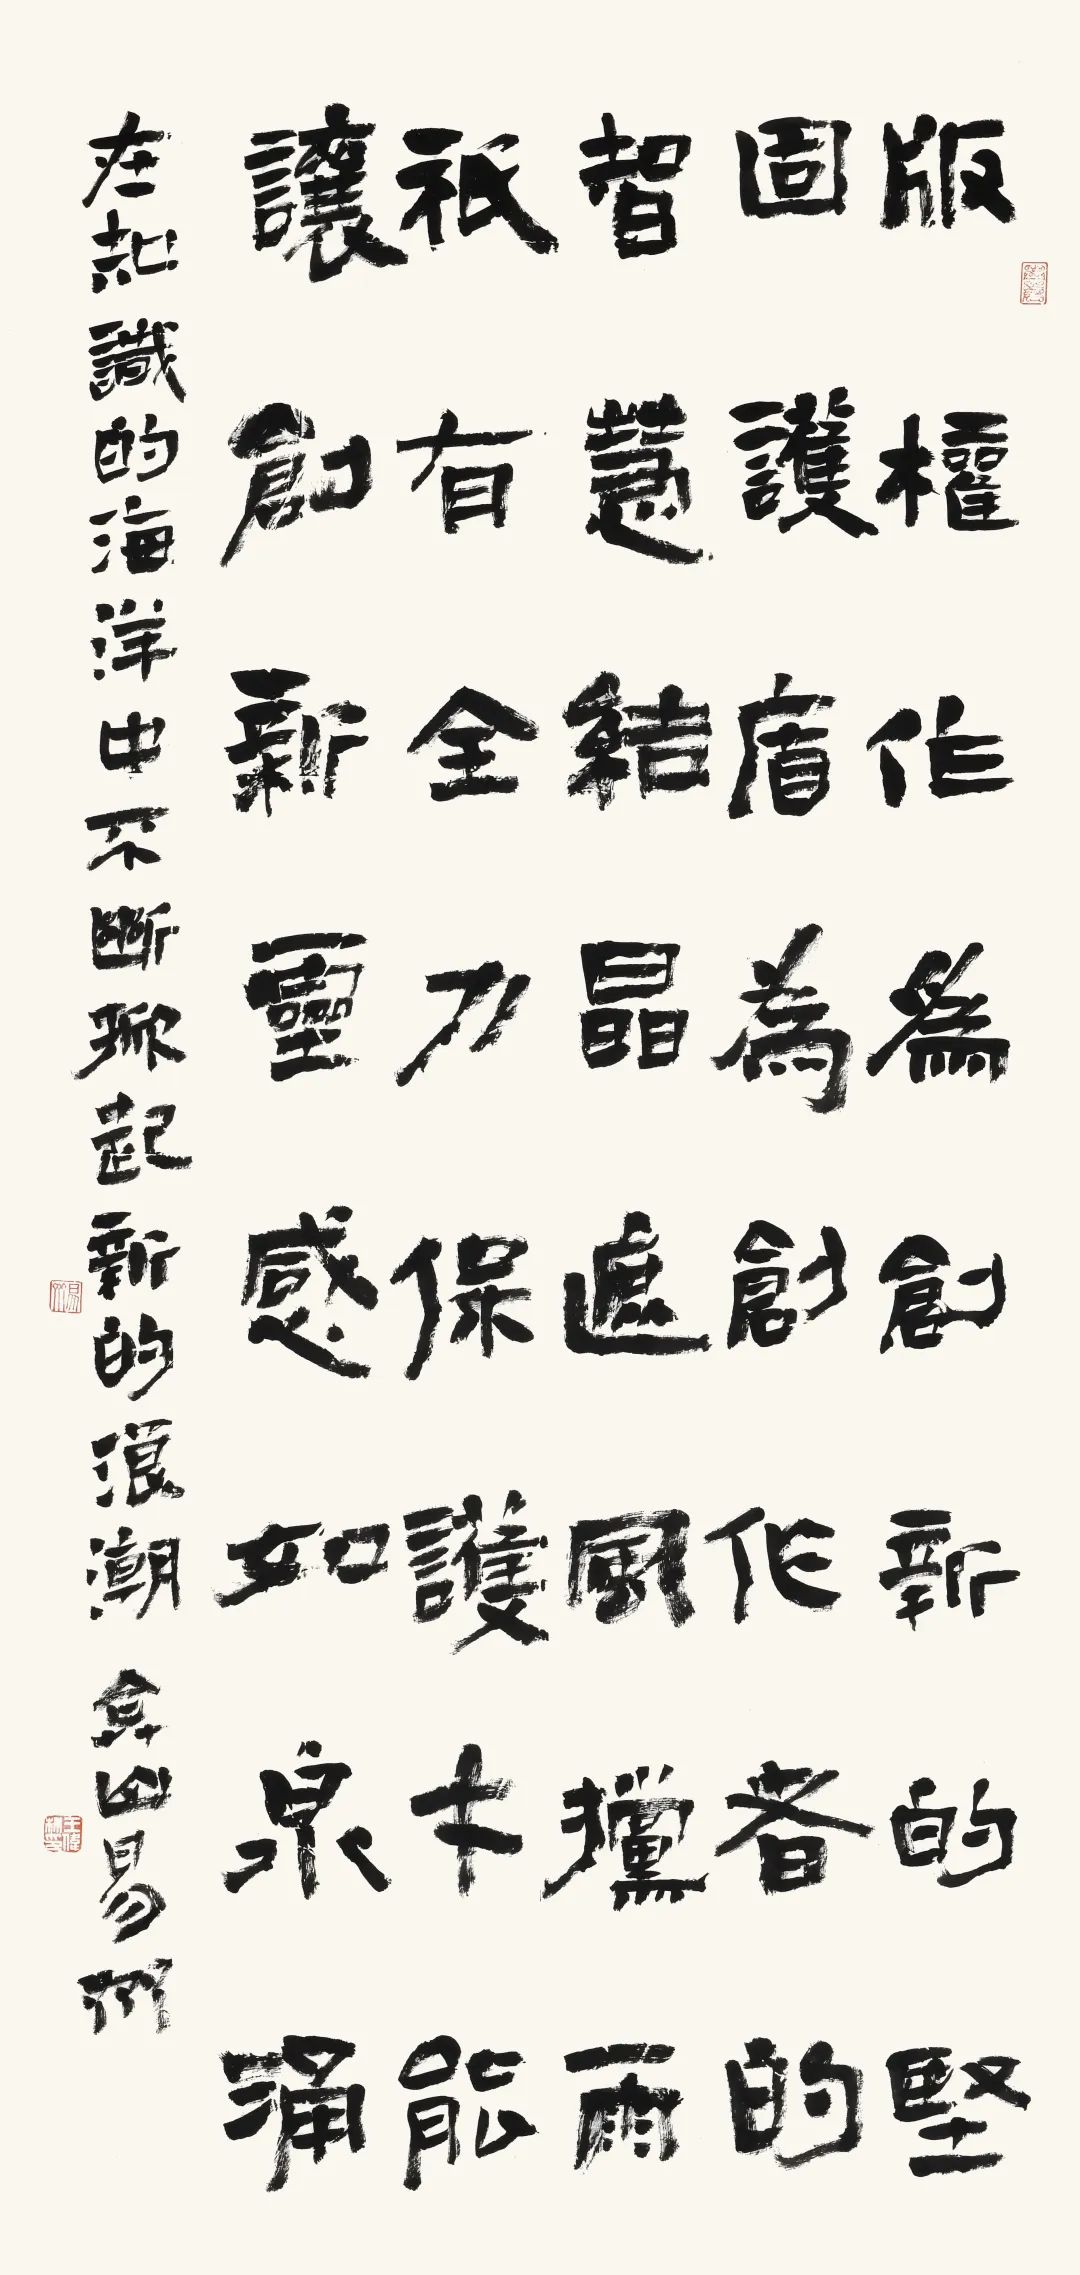 版權作爲創新的堅
固護盾為創作者的
智慧結晶遮風攩雨
祇有全力保護才能
讓創新靈感如泉涌
在知識的海洋中不斷掀起新的浪潮 弇山易